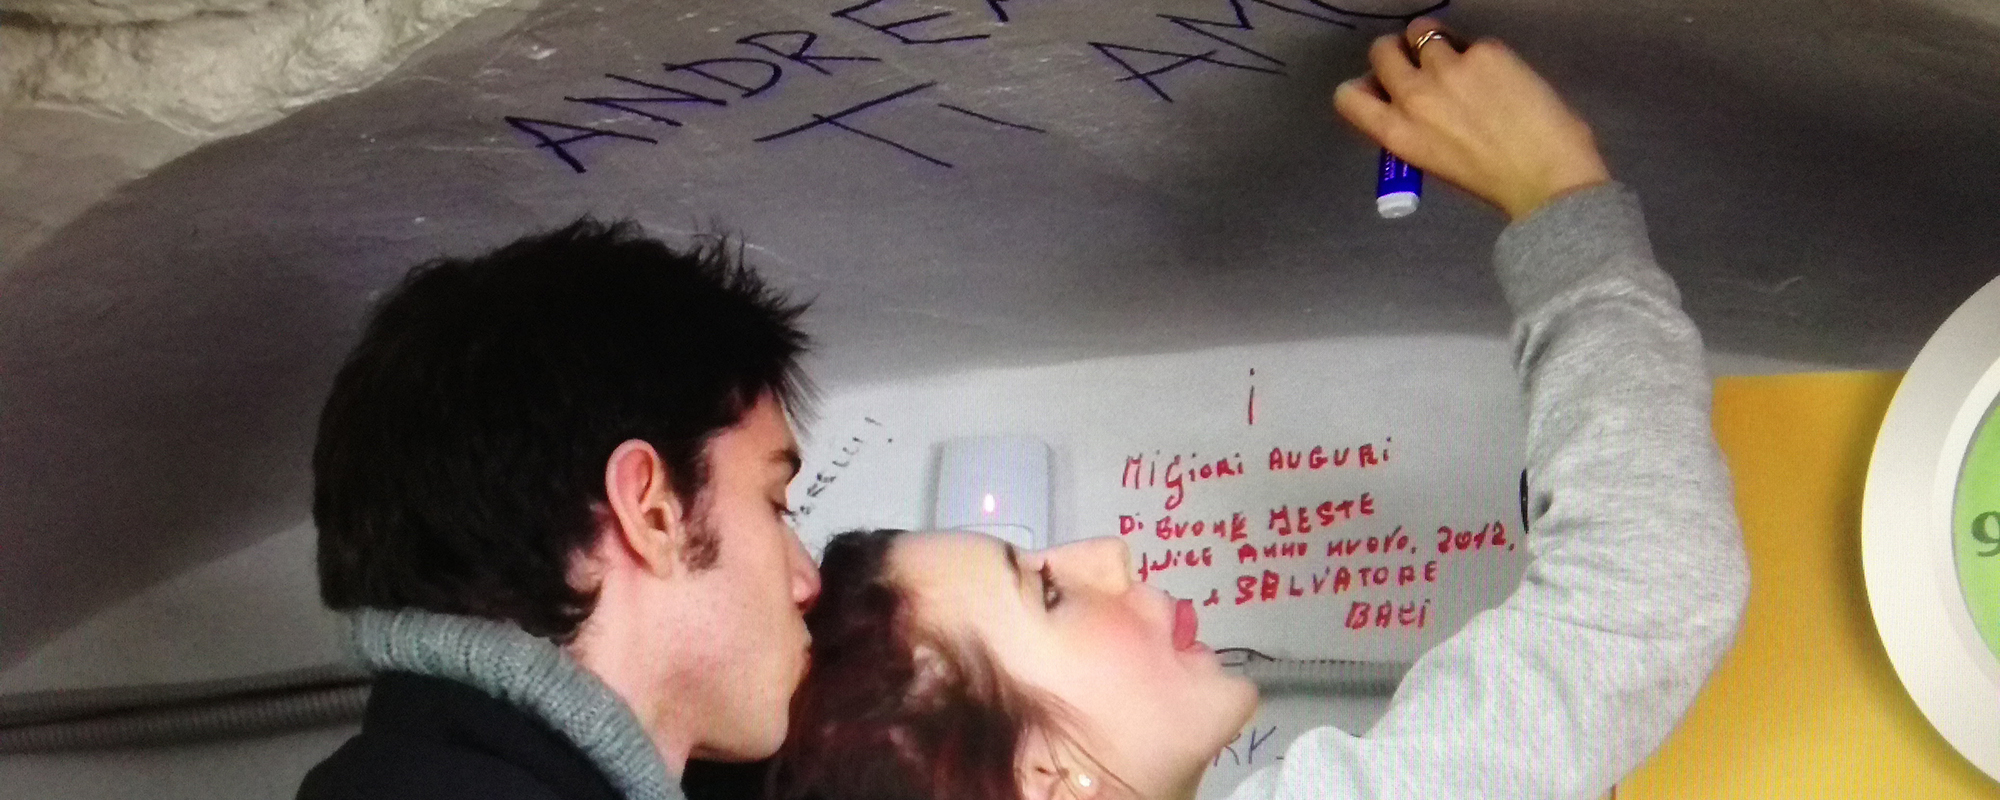 ANDREA
TI AMO
i
MiGiORi AUGURi
Di BUONE FESTE
FELICE ANNO NUOVO. 2012.
SALVATORE
BACi
9